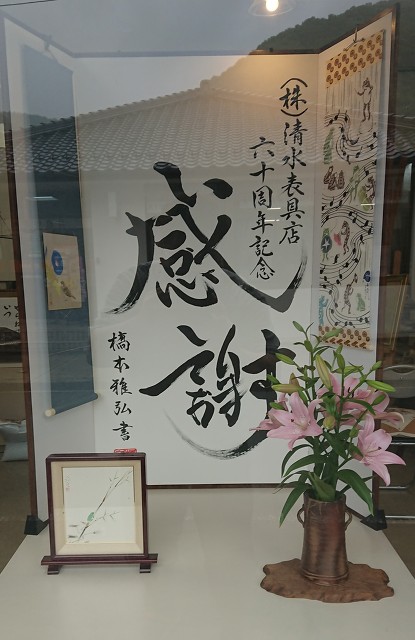 (株)清水表具店
六十周年記念
感謝
橋本雅弘書